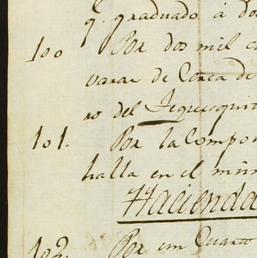 q. graduado à do
100 Por dos mil c
varas de Cerca de
ro del Tequesqui
101. Por la Compo
halla en el mis
Hacienda
102. Por un Quarto